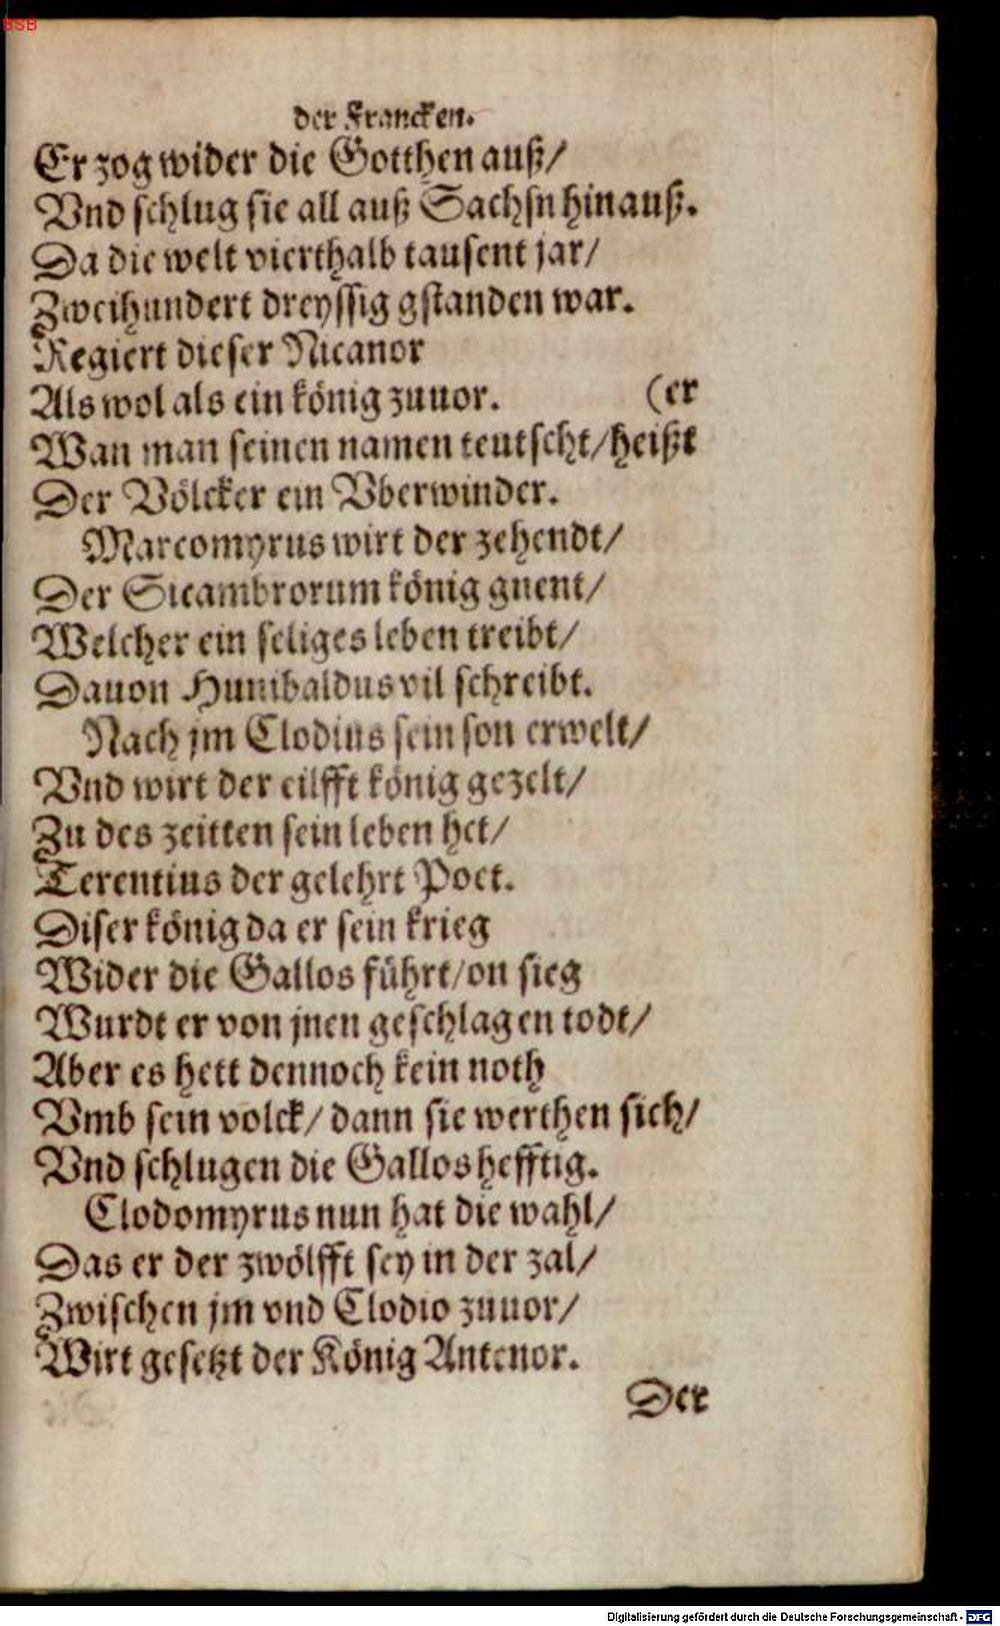 BSB
der Francken.
Er zog wider die Gotthen auß/
Vnd schlug sie all auß Sachsn hinauß.
Da die welt vierthalb tausent jar/
Zweihundert dreyssig gstanden war.
Regiert dieser Nicanor
Als wol als ein könig zuuor. (er
Wan man seinen namen teutscht/heißt
Der Völcker ein Vberwinder.
Marcomyrus wirt der zehendt/
Der Sicambrorum könig gnent/
Welcher ein seliges leben treibt/
Dauon Hunibaldus vil schreibt.
Nach jm Clodius sein son erwelt/
Vnd wirt der eilfft könig gezelt/
Zu des zeitten sein leben het/
Terentius der gelehrt Poet.
Diser könig da er sein krieg
Wider die Gallos führt/on sieg
Wurdt er von jnen geschlagen todt/
Aber es hett dennoch kein noth
Vmb sein volck/dann sie werthen sich/
Vnd schlugen die Gallos hefftig.
Clodomyrus nun hat die wahl/
Das er der zwölfft sey in der zal/
Zwischen jm vnd Clodio zuuor/
Wirt gesetzt der König Antenor.
Der
Digitalisierung gefördert durch die Deutsche Forschungsgemeinschaft - DFG